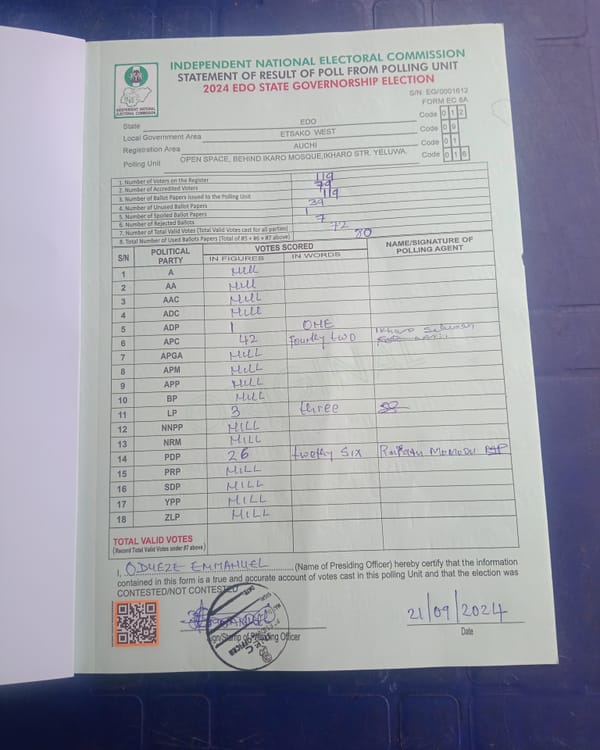 INDEPENDENT NATIONAL ELECTORAL COMMISSION
STATEMENT OF RESULT OF POLL FROM POLLING UNIT
2024 EDO STATE GOVERNORSHIP ELECTION
INDEPENDENT NATIONAL ELECTORAL COMMISSION
S/N: EG/0001612
FORM EC 8A
State EDO Code 0 1 2
Local Government Area ETSAKO WEST Code 0 9
Registration Area AUCHI Code 0 1
Polling Unit OPEN SPACE, BEHIND IKARO MOSQUE,IKHARO STR. YELUWA. Code 0 1 6
1. Number of Voters on the Register 119
2. Number of Accredited Voters 79
3. Number of Ballot Papers Issued to the Polling Unit 119
4. Number of Unused Ballot Papers 39
5. Number of Spoiled Ballot Papers 1
6. Number of Rejected Ballots 7
7. Number of Total Valid Votes (Total Valid Votes cast for all parties) 72
8. Total Number of Used Ballots Papers (Total of #5 + #6 + #7 above) 80
S/N POLITICAL PARTY VOTES SCORED NAME/SIGNATURE OF POLLING AGENT
IN FIGURES IN WORDS
1 A Mill
2 AA Mill
3 AAC Mill
4 ADC Mill
5 ADP 1 ONE
6 APC 42 Fourthy two Ikharo
7 APGA Mill
8 APM Mill
9 APP Mill
10 BP Mill
11 LP 3 three
12 NNPP MILL
13 NRM MILL
14 PDP 26 twethy six Momodu
15 PRP MILL
16 SDP MILL
17 YPP MILL
18 ZLP MILL
TOTAL VALID VOTES
(Record Total Valid Votes under #7 above)
I, ODUEZE EMMANUEL (Name of Presiding Officer) hereby certify that the information
contained in this form is a true and accurate account of votes cast in this polling Unit and that the election was
CONTESTED/NOT CONTESTED
21/09/2024
Sign/Stamp of Presiding Officer Date